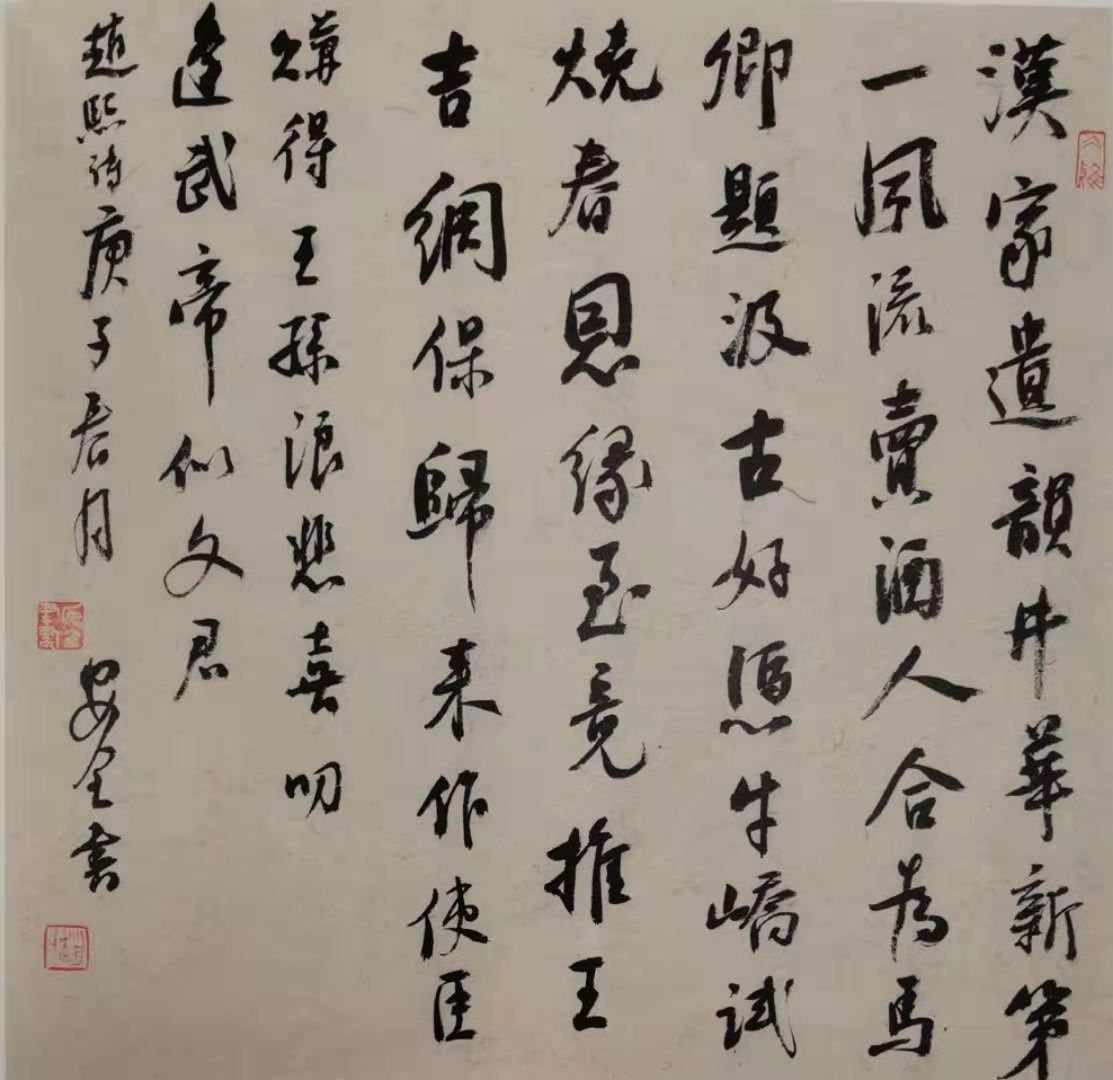 漢家遺韻井華新第
一風流賣酒人合為馬
卿題汲古好憑牛嶠試
燒春恩緣至竟推王
吉綢保歸来作使臣
賺得王孫浪悲喜叨
逢武帝似文君
趙熙詩庚子春月
安全書